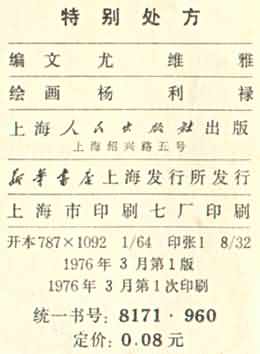 特别处方
编文 尤维雅
绘画 杨利禄
上海人民出版社出版
上海绍兴路五号
新华书店上海发行所发行
上海市印刷七厂印刷
开本787×1092 1/64 印张1 8/32
1976年3月第1版
1976年3月第1次印刷
统一书号：8171·960
定价：0.08元